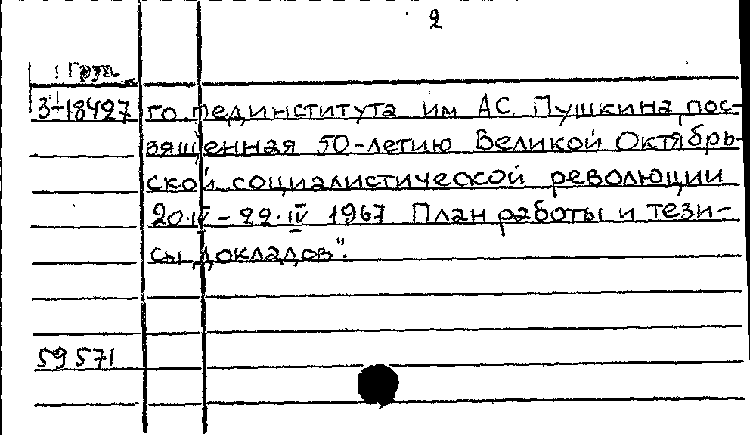 2
Груз.
3-18427 го пединститута им А.С. Пушкина, пос-
вященная 50-летию Великой Октябрь-
ской социалистической революции
20.IV - 22.IV 1967 План работы и тези-
сы докладов".
59571